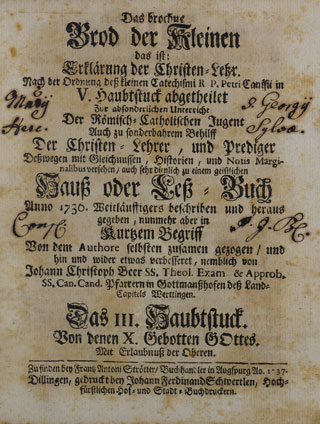 Das brochne
Brod der Kleinen
das ist:
Erklärung der Christen-Lehr.
Nach der Ordnung deß kleinen Catechismi R P. Petri Canisii in
V. Haubtstuck abgetheilet
Zur absonderlichen Unterricht
Der Römisch-Catholischen Jugent
Auch zu sonderbahrem Behilff
Der Christen-Lehrer, und Prediger
Deßwegen mit Gleichnussen, Historien, und Notis Margi-
nalibus versehen / auch sehr dienlich zu einem geistlichen
Hauß oder Leß-Buch
Anno 1736. Weitläuffigers beschriben und heraus
gegeben, nunmehr aber in
Kurtzem Begriff
Von dem Authore selbsten zusamen gezogen / und
hin und wider etwas verbesseret, nemblich von
Johann Christoph Beer SS. Theol. Exam & Approb.
SS. Can. Cand. Pfarrern in Gottmanßhofen deß Land-
Capitels Wertingen.
Das III. Haubtstuck.
Von denen X. Gebotten GOttes.
Mit Erlaubnuß der Oberen.
Zu finden bey Frantz Antoni Strötter / Buchhandler in Augspurg Ao. 1737.
Dillingen, gedruckt bey Johann Ferdinand Schwertlen, Hoch-
fürstlichen Hof- und Stadt-Buchdruckern.